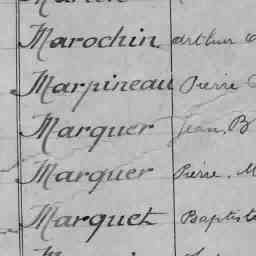 Marochin Arthur
Marpineau Pierre
Marquer Jean, B
Marquer Pierre, M
Marquet Baptiste